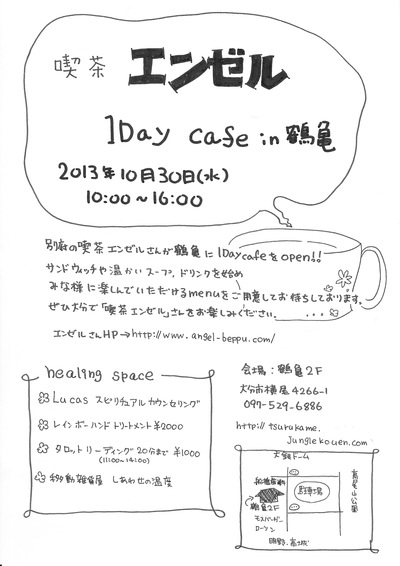 喫茶 エンゼル
1Day cafe in 鶴亀
2013年10月30日(水)
10:00~16:00
別府の喫茶エンゼルさんが鶴亀に1Daycafeをopen!!
サンドウィッチや温かいスープ、ドリンクを始め
みな様に楽しんでいただけるmenuをご用意してお待ちしております。
ぜひ大分で「喫茶エンゼル」さんをお楽しみください。・・・
エンゼルさんHP→http://www.angel-beppu.com/
healing space
Lucas スピリチュアルカウンセリング
レインボーハンドトリートメント¥2000
タロットリーディング20分まで ¥1000
(11:00~14:00)
移動雑貨屋 しあわせの温度
会場:鶴亀2F
大分市横尾4266-1
097-529-6886
http://tsurukame.
junglekouen.com
大銀ドーム
駐車場
鶴亀2F
モスバーガー
ローソン
高尾山公園
明野、高城